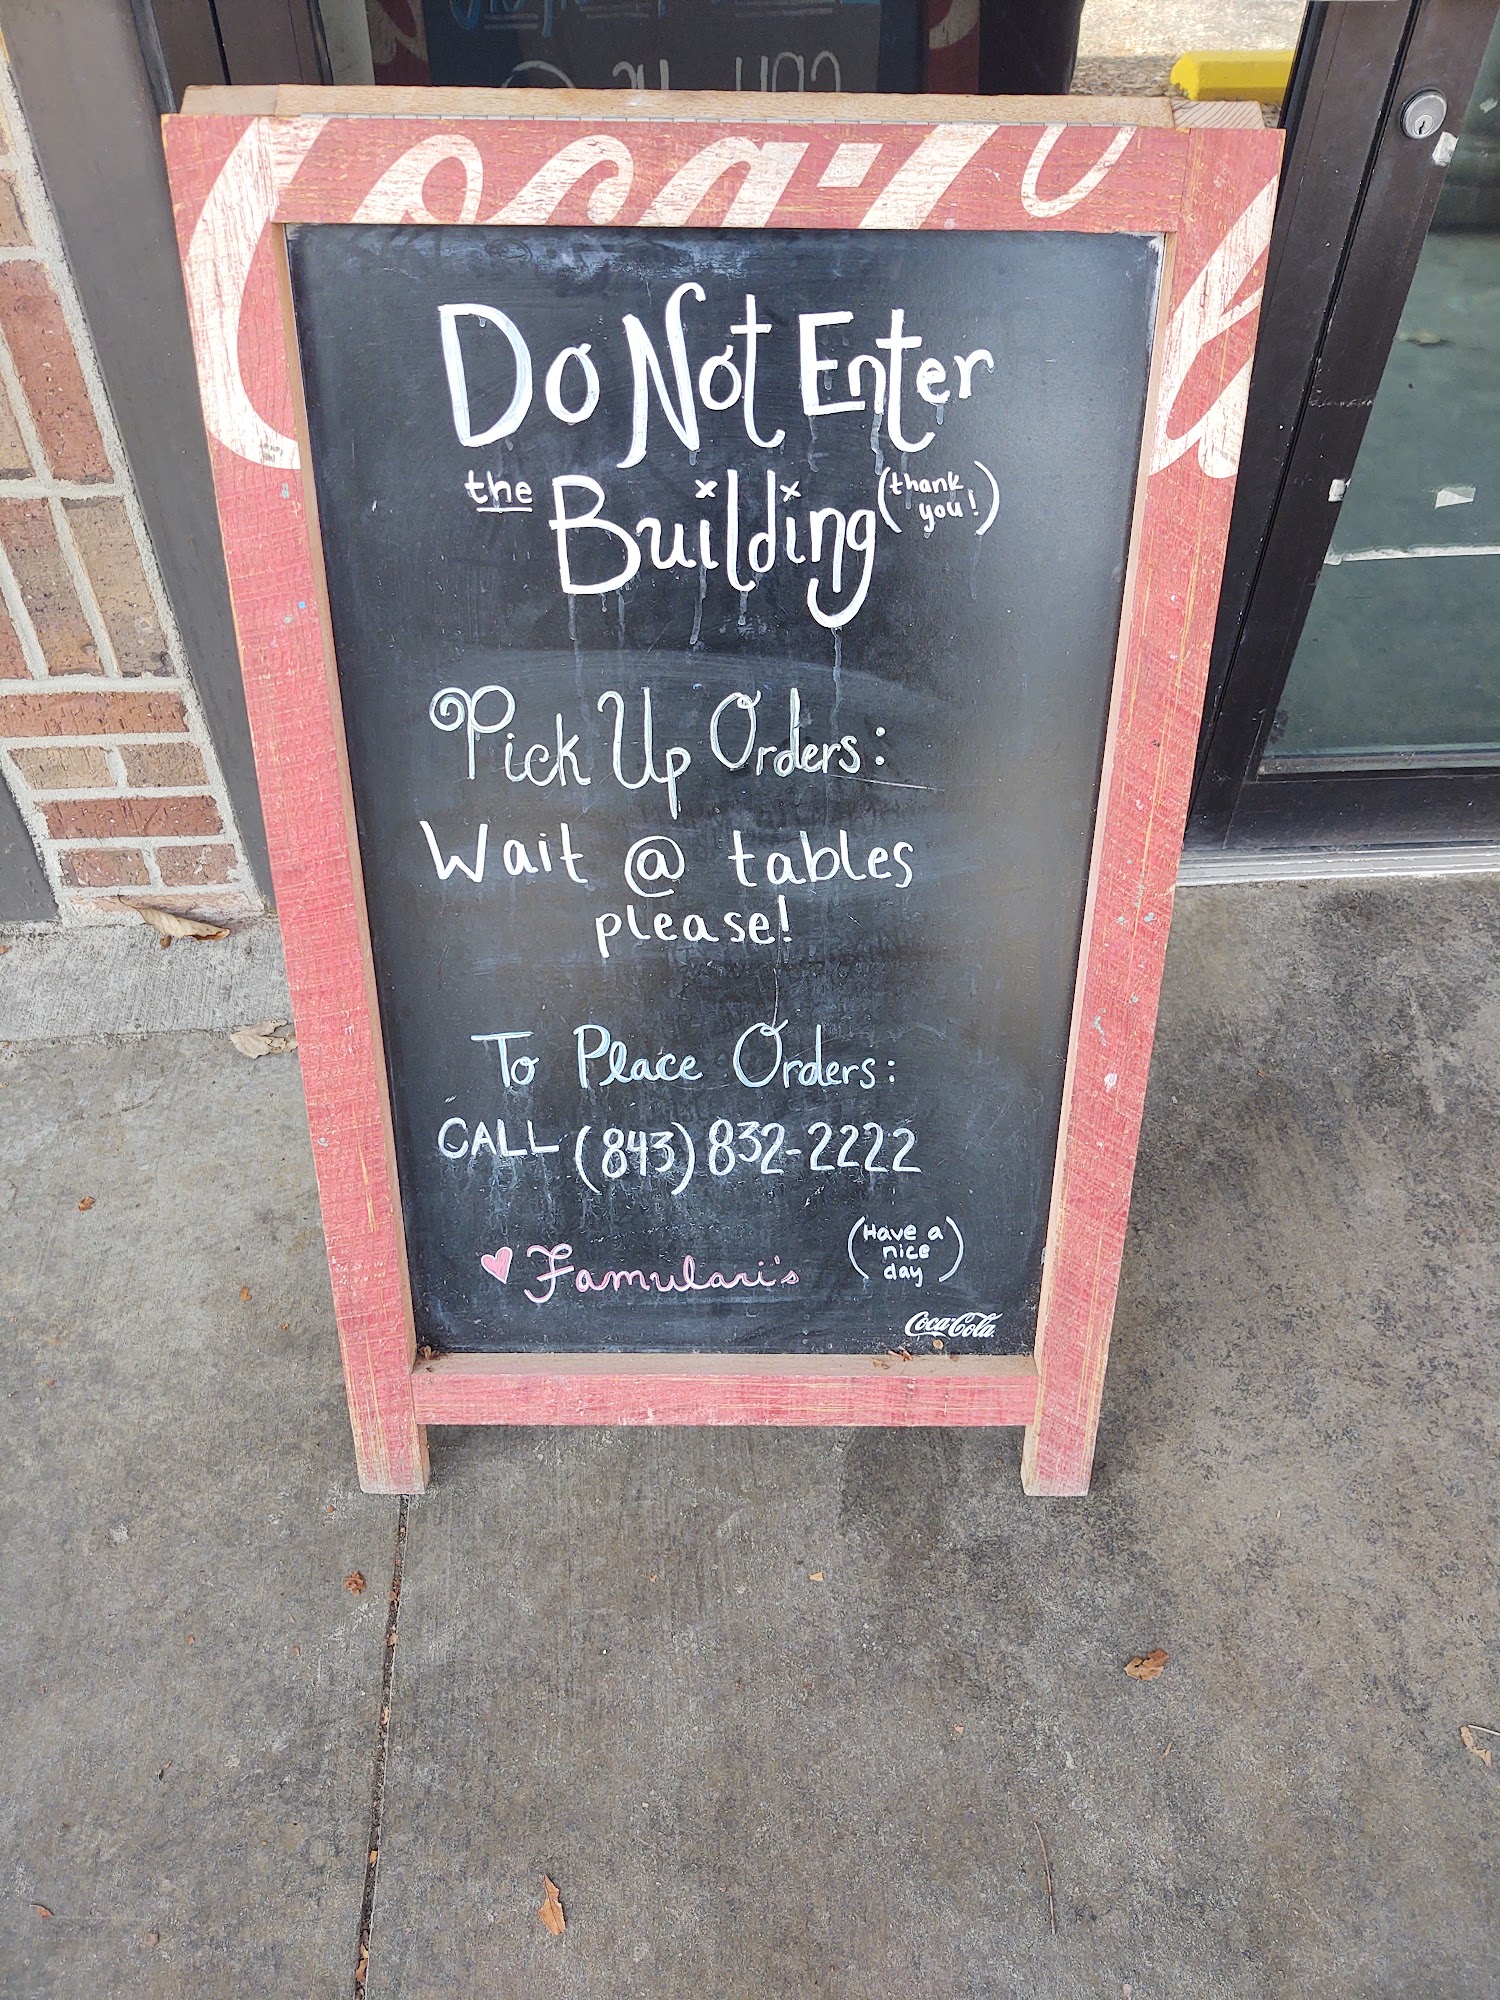 Coca-Cola
Do Not Enter
the Building (thank you!)
Pick Up Orders:
Wait @ tables
please!
To Place Orders:
CALL (843) 832-2222
Famulari's
(Have a
nice
day)
Coca-Cola